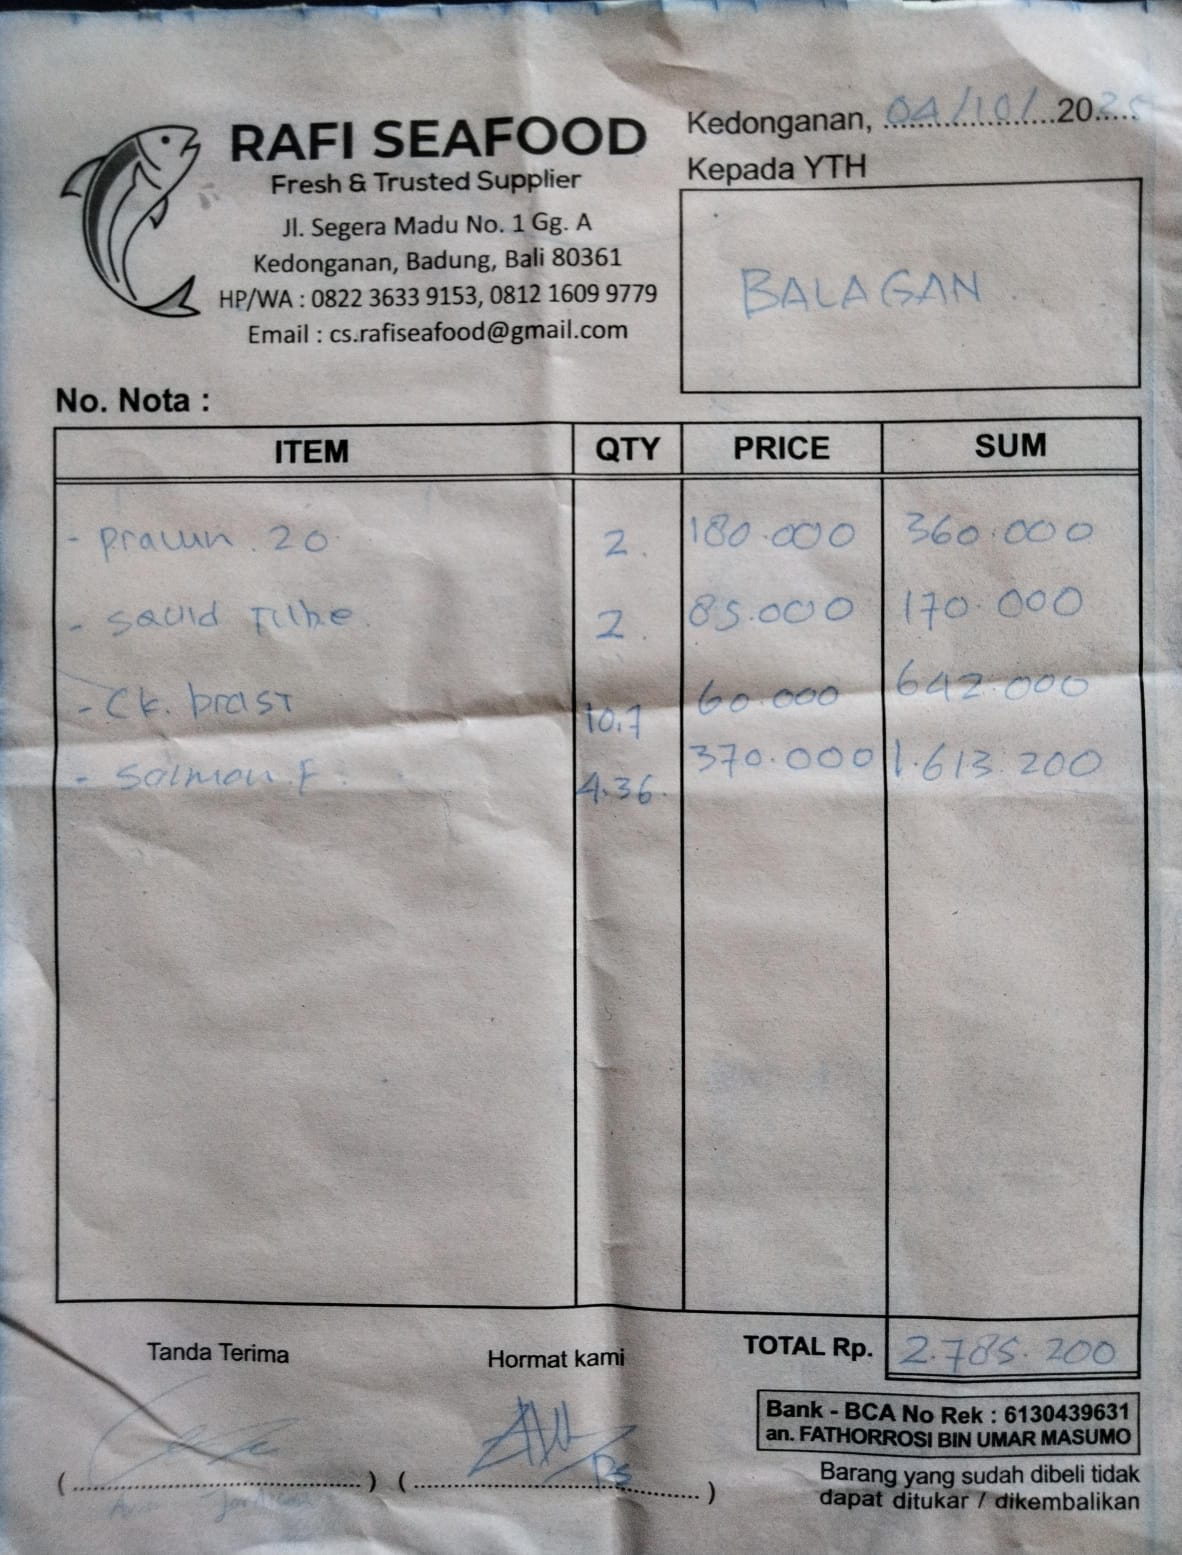 RAFI SEAFOOD
Fresh & Trusted Supplier
Jl. Segera Madu No. 1 Gg. A
Kedonganan, Badung, Bali 80361
HP/WA : 0822 3633 9153, 0812 1609 9779
Email : cs.rafiseafood@gmail.com
Kedonganan, 04/10/ 2025
Kepada YTH
BALAGAN
No. Nota :
ITEM QTY PRICE SUM
- Prawn . 20 2 . 180.000 360.000
- Squid Tube 2 . 85.000 170.000
- Ck. brast 10.7 60.000 642.000
- Salmon. F. 4.36. 370.000 1.613.200
TOTAL Rp. 2.785.200
Tanda Terima Hormat kami
Bank - BCA No Rek : 6130439631
an. FATHORROSI BIN UMAR MASUMO
Barang yang sudah dibeli tidak
dapat ditukar / dikembalikan